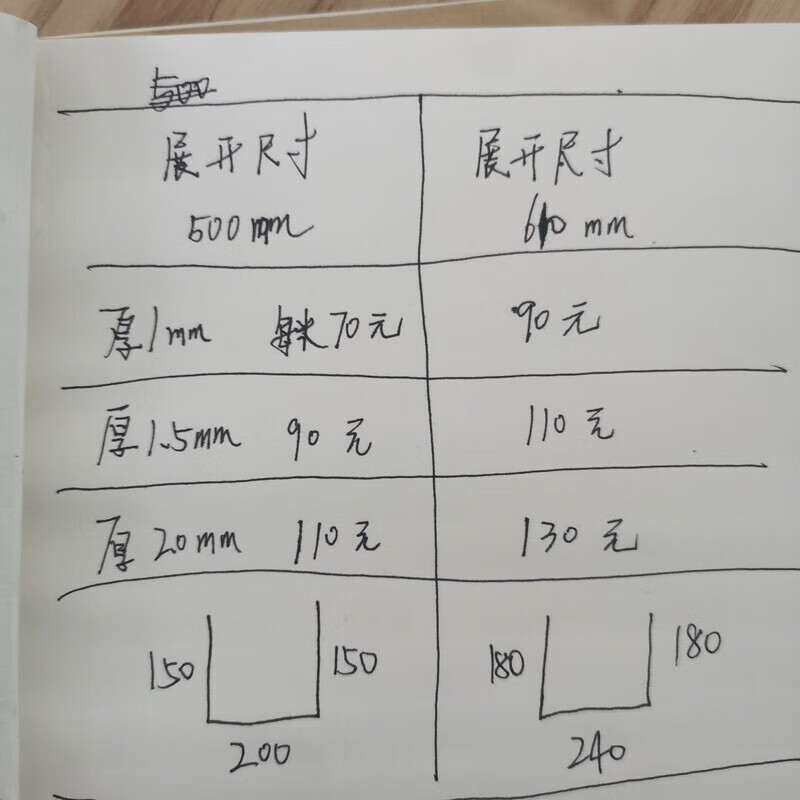 500
展开尺寸 展开尺寸
500mm 610 mm
厚1mm 每米70元 90元
厚1.5mm 90元 110元
厚20mm 110元 130元
150 150 180 180
200 240